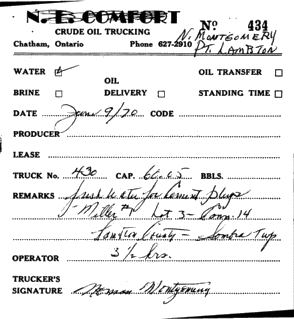 N. B. COMFORT
CRUDE OIL TRUCKING
Chatham, Ontario Phone 627-2910
No 434
N. MONTGOMERY
PT. LAMBTON
WATER ☑ OIL OIL TRANSFER ☐
BRINE ☐ DELIVERY ☐ STANDING TIME ☐
DATE June 9/70 CODE
PRODUCER
LEASE
TRUCK No. 430 CAP. 66.05 BBLS.
REMARKS fresh water for cement plugs
Miller #1 Lot 3 - Con. 14
Lambton County - Sombra Twp
3 1/2 hrs.
OPERATOR
TRUCKER'S
SIGNATURE Norman Montgomery